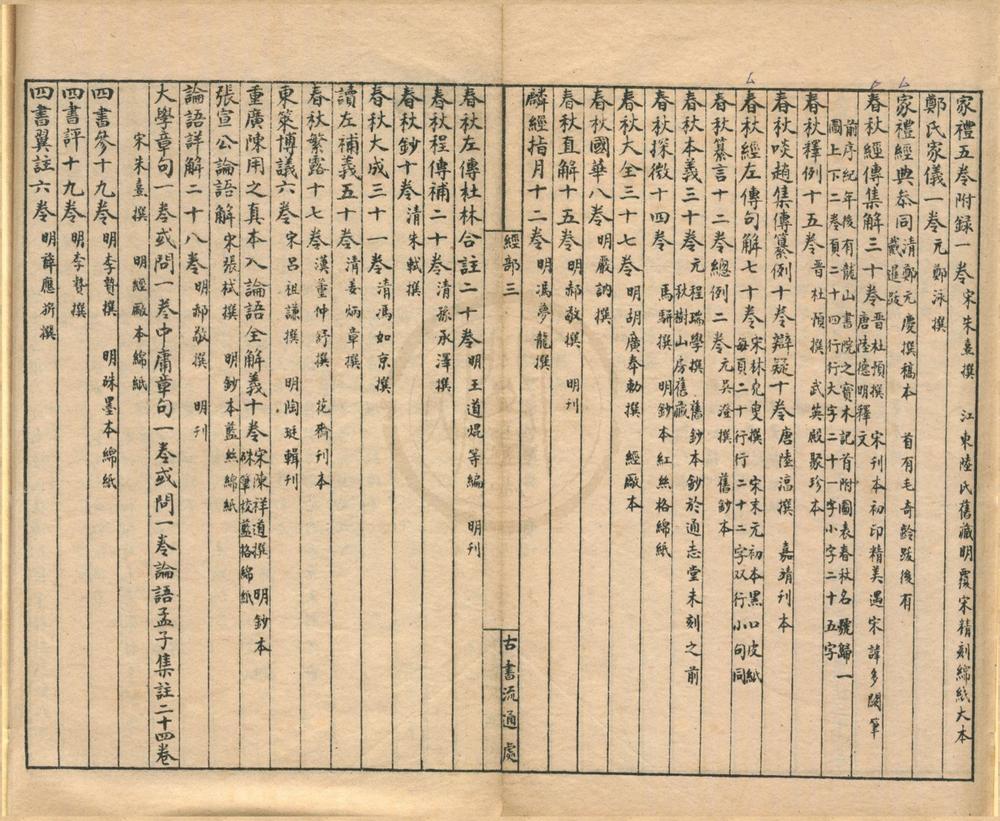 家禮五卷附錄一卷 宋朱熹撰 江東陸氏舊藏明覆宋精刻綿紙大本
鄭氏家儀一卷 元鄭泳撰
家禮經典叅同 清鄭元慶撰稿本 首有毛奇齡跋後有戴𤩴跋
春秋經傳集解三十卷 晋杜預撰 唐陸德明釋文 宋刊本初印精美遇宋諱多闕筆
前序紀年後有龍山書院之寶木記首附圖表春秋名號歸一
圖上下二卷頁二十四行行大字二十一字小字二十五字
春秋釋例十五卷 晋杜預撰 武英殿聚珍本
春秋啖趙集傳纂例十卷辯疑十卷 唐陸淳撰 嘉靖刊本
春秋經左傳句解七十卷 宋林堯叟撰 宋末元初本黑口皮紙 每頁二十行行二十二字双行小句同
春秋纂言十二卷總例二卷 元吳澄撰 舊鈔本
春秋本義三十卷 元程瑞學撰 舊鈔本鈔於通志堂未刻之前 秋樹山房舊藏
春秋探微十四卷 馬騈撰 明鈔本紅絲格綿紙
春秋大全三十七卷 明胡廣奉勅撰 經廠本
春秋國華八卷 明嚴訥撰
春秋直解十五卷 明郝敬撰 明刊
麟經指月十二卷 明馮夢龍撰
經部三
古書流通處
春秋左傳杜林合註二十卷 明王道焜等編 明刊
春秋程傳補二十卷 清孫承澤撰
春秋鈔十卷 清朱軾撰
春秋大成三十一卷 清馮如京撰
讀左補義五十卷 清姜炳章撰
春秋繁露十七卷 漢董仲舒撰 花齋刊本
東萊博議六卷 宋呂祖謙撰 明陶珽輯刊
重廣陳用之真本入論語全解義十卷 宋陳祥道撰 明鈔本 硃筆校藍格綿紙
張宣公論語解 宋張栻撰 明鈔本藍絲綿紙
論語詳解二十八卷 明郝敬撰 明刊
大學章句一卷或問一卷中庸章句一卷或問一卷論語孟子集註二十四卷
宋朱熹撰 明經廠本綿紙
四書參十九卷 明李贄撰 明硃墨本綿紙
四書評十九卷 明李贄撰
四書翼註六卷 明薛應旂撰